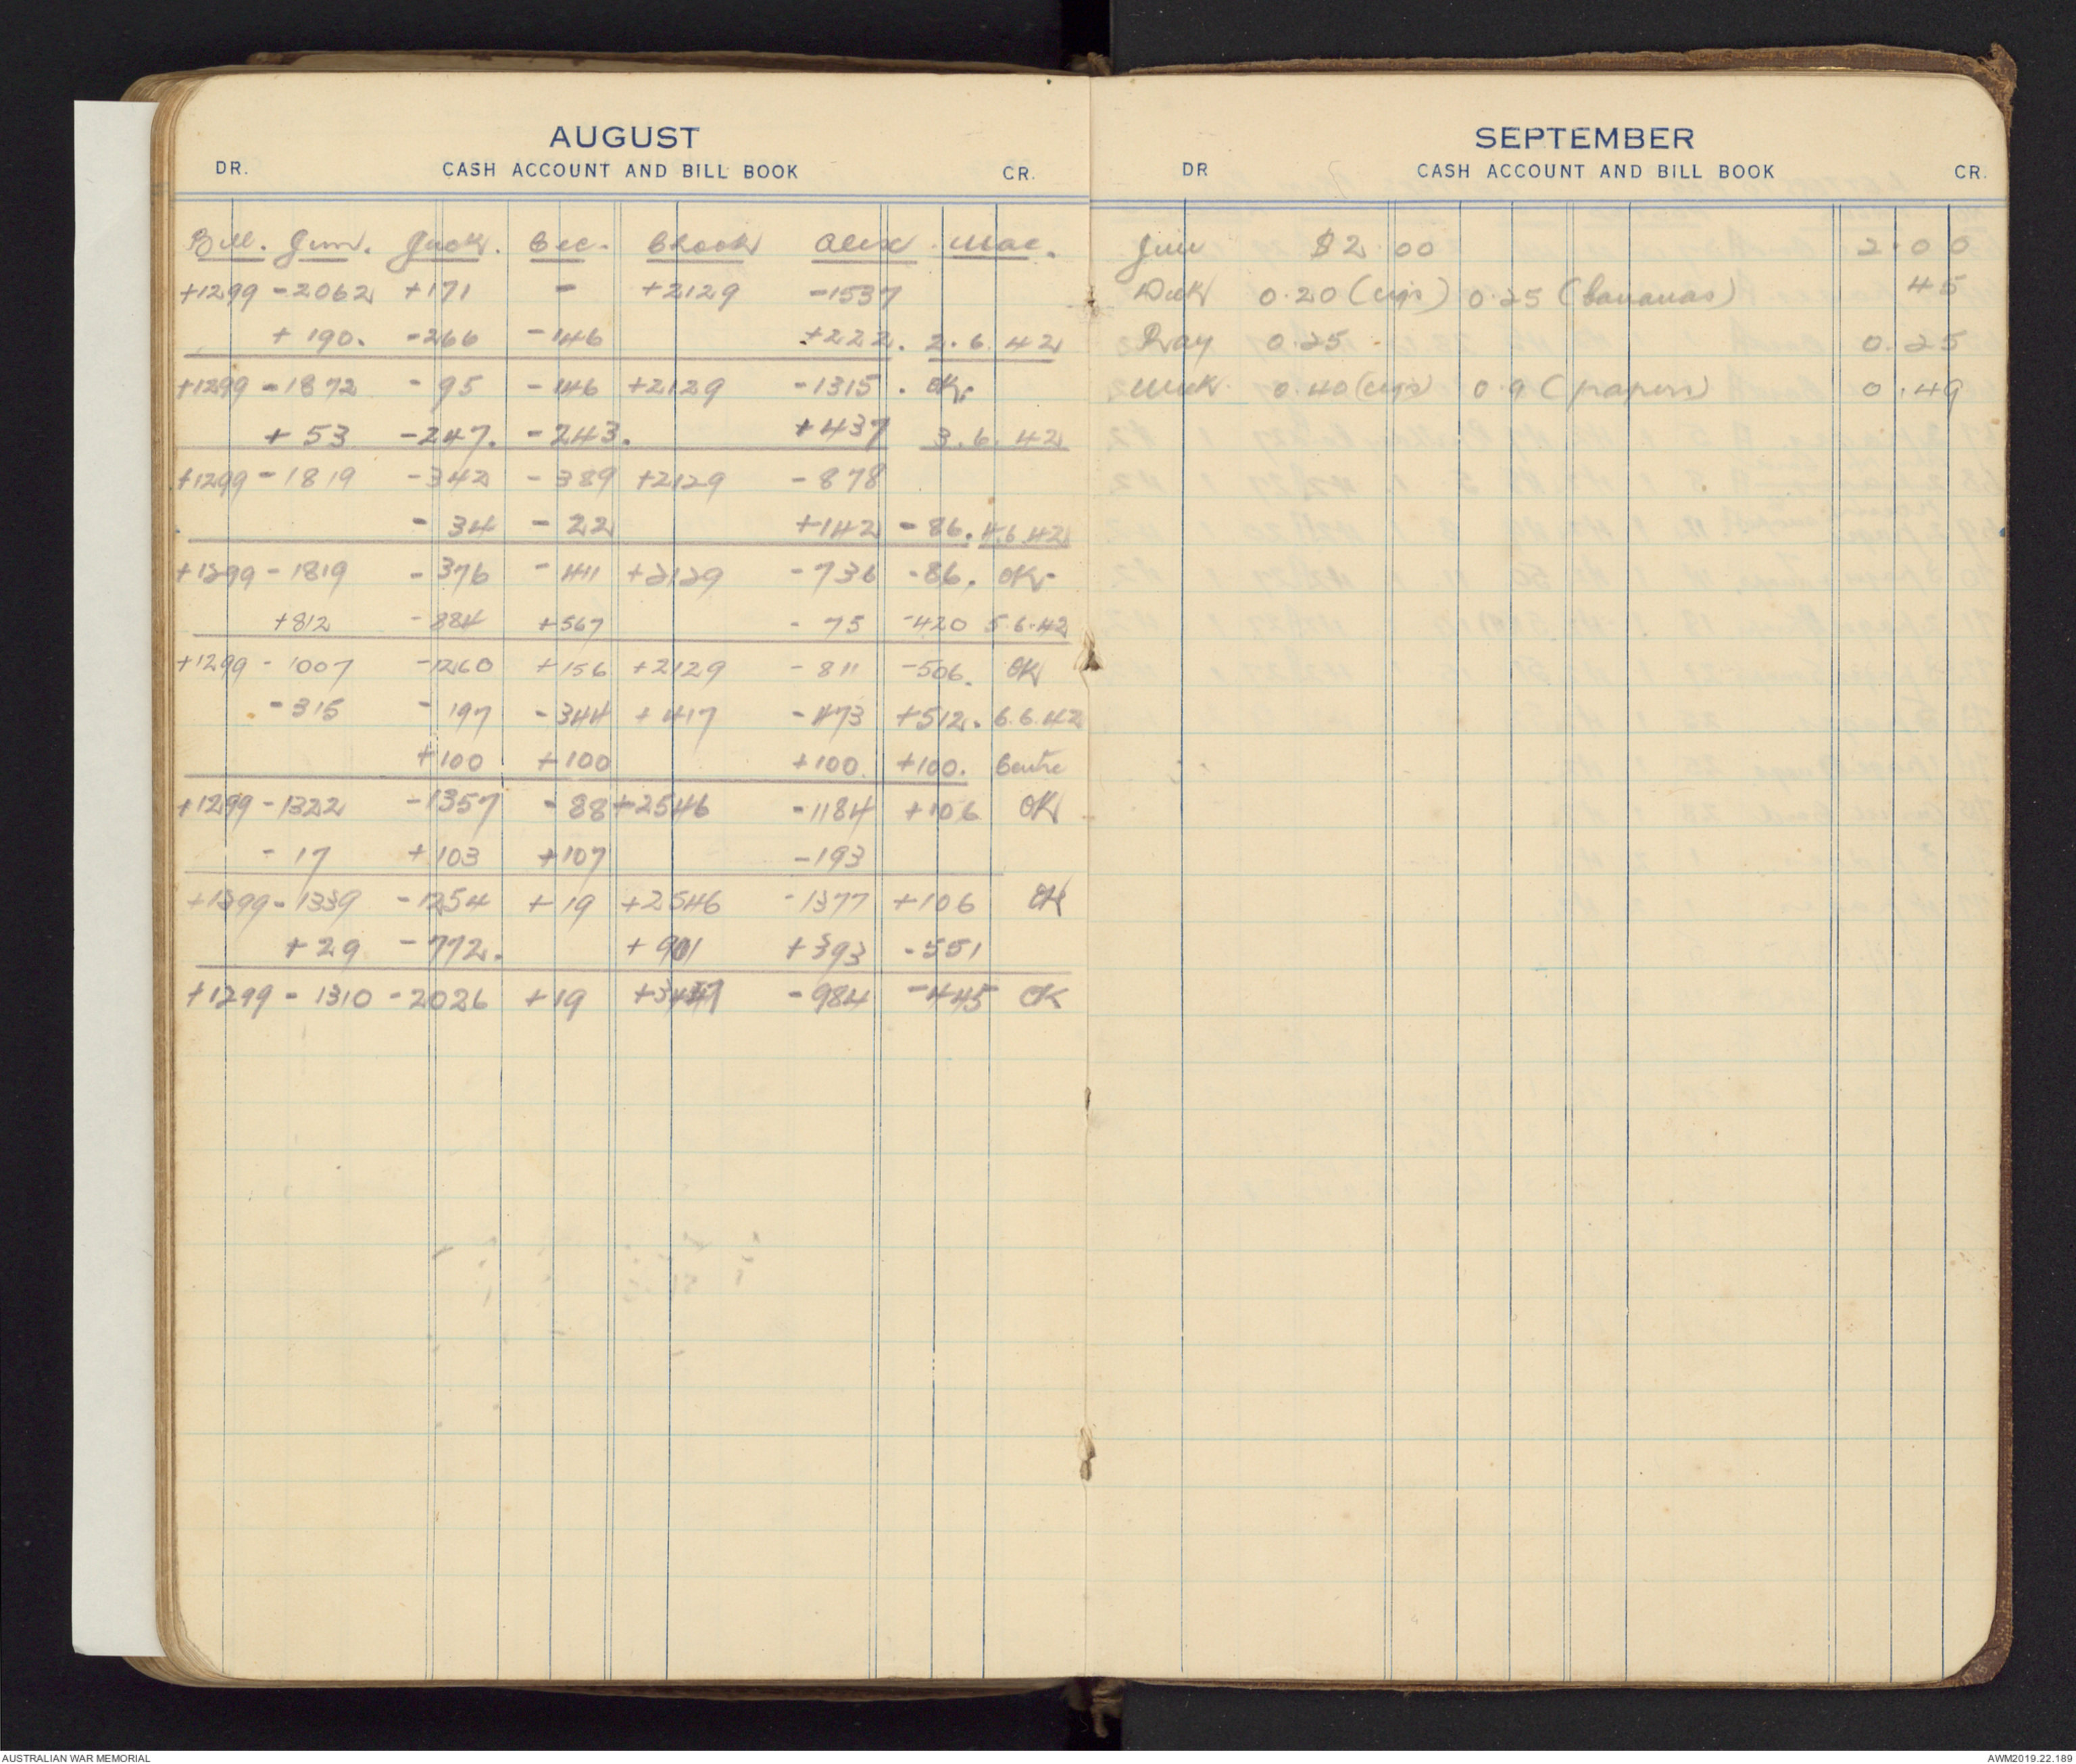 AUGUST
DR. CASH ACCOUNT AND BILL BOOK CR.
Bill. Jim. Jack. Cec. Chook Alex Mac.
+1299 -2062 +171 - +2129 -1537
+190. -266 -146 +222. 2.6.42
+1299 -1872 -95 -146 +2129 -1315. OK.
+53 -247. -243. +437 3.6.42
+1299 -1819 -342 -389 +2129 -878
-34 -22 +142 -86. 4.6.42
+1299 -1819 -376 -411 +2129 -736 -86. OK-
+812 -884 +567 -75 -420 5.6.42
+1299 -1007 -1260 +156 +2129 -811 -506. OK
-315 -197 -344 +417 -473 +512. 6.6.42
+100 +100 +100 +100. Centre
+1299 -1322 -1357 -88 +2546 -1184 +106 OK
-17 +103 +107 -193
+1299 -1339 -1254 +19 +2546 -1377 +106 OK
+29 -772. +901 +393 -551
+1299 -1310 -2026 +19 +3447 -984 -445 OK
SEPTEMBER
DR CASH ACCOUNT AND BILL BOOK CR.
Jim $2.00 2.00
Dick 0.20 (cigs) 0.25 (bananas) 45
Ray 0.25 0.25
0.40 (cigs) 0.9 (papers) 0.49
AUSTRALIAN WAR MEMORIAL
AWM2019.22.189